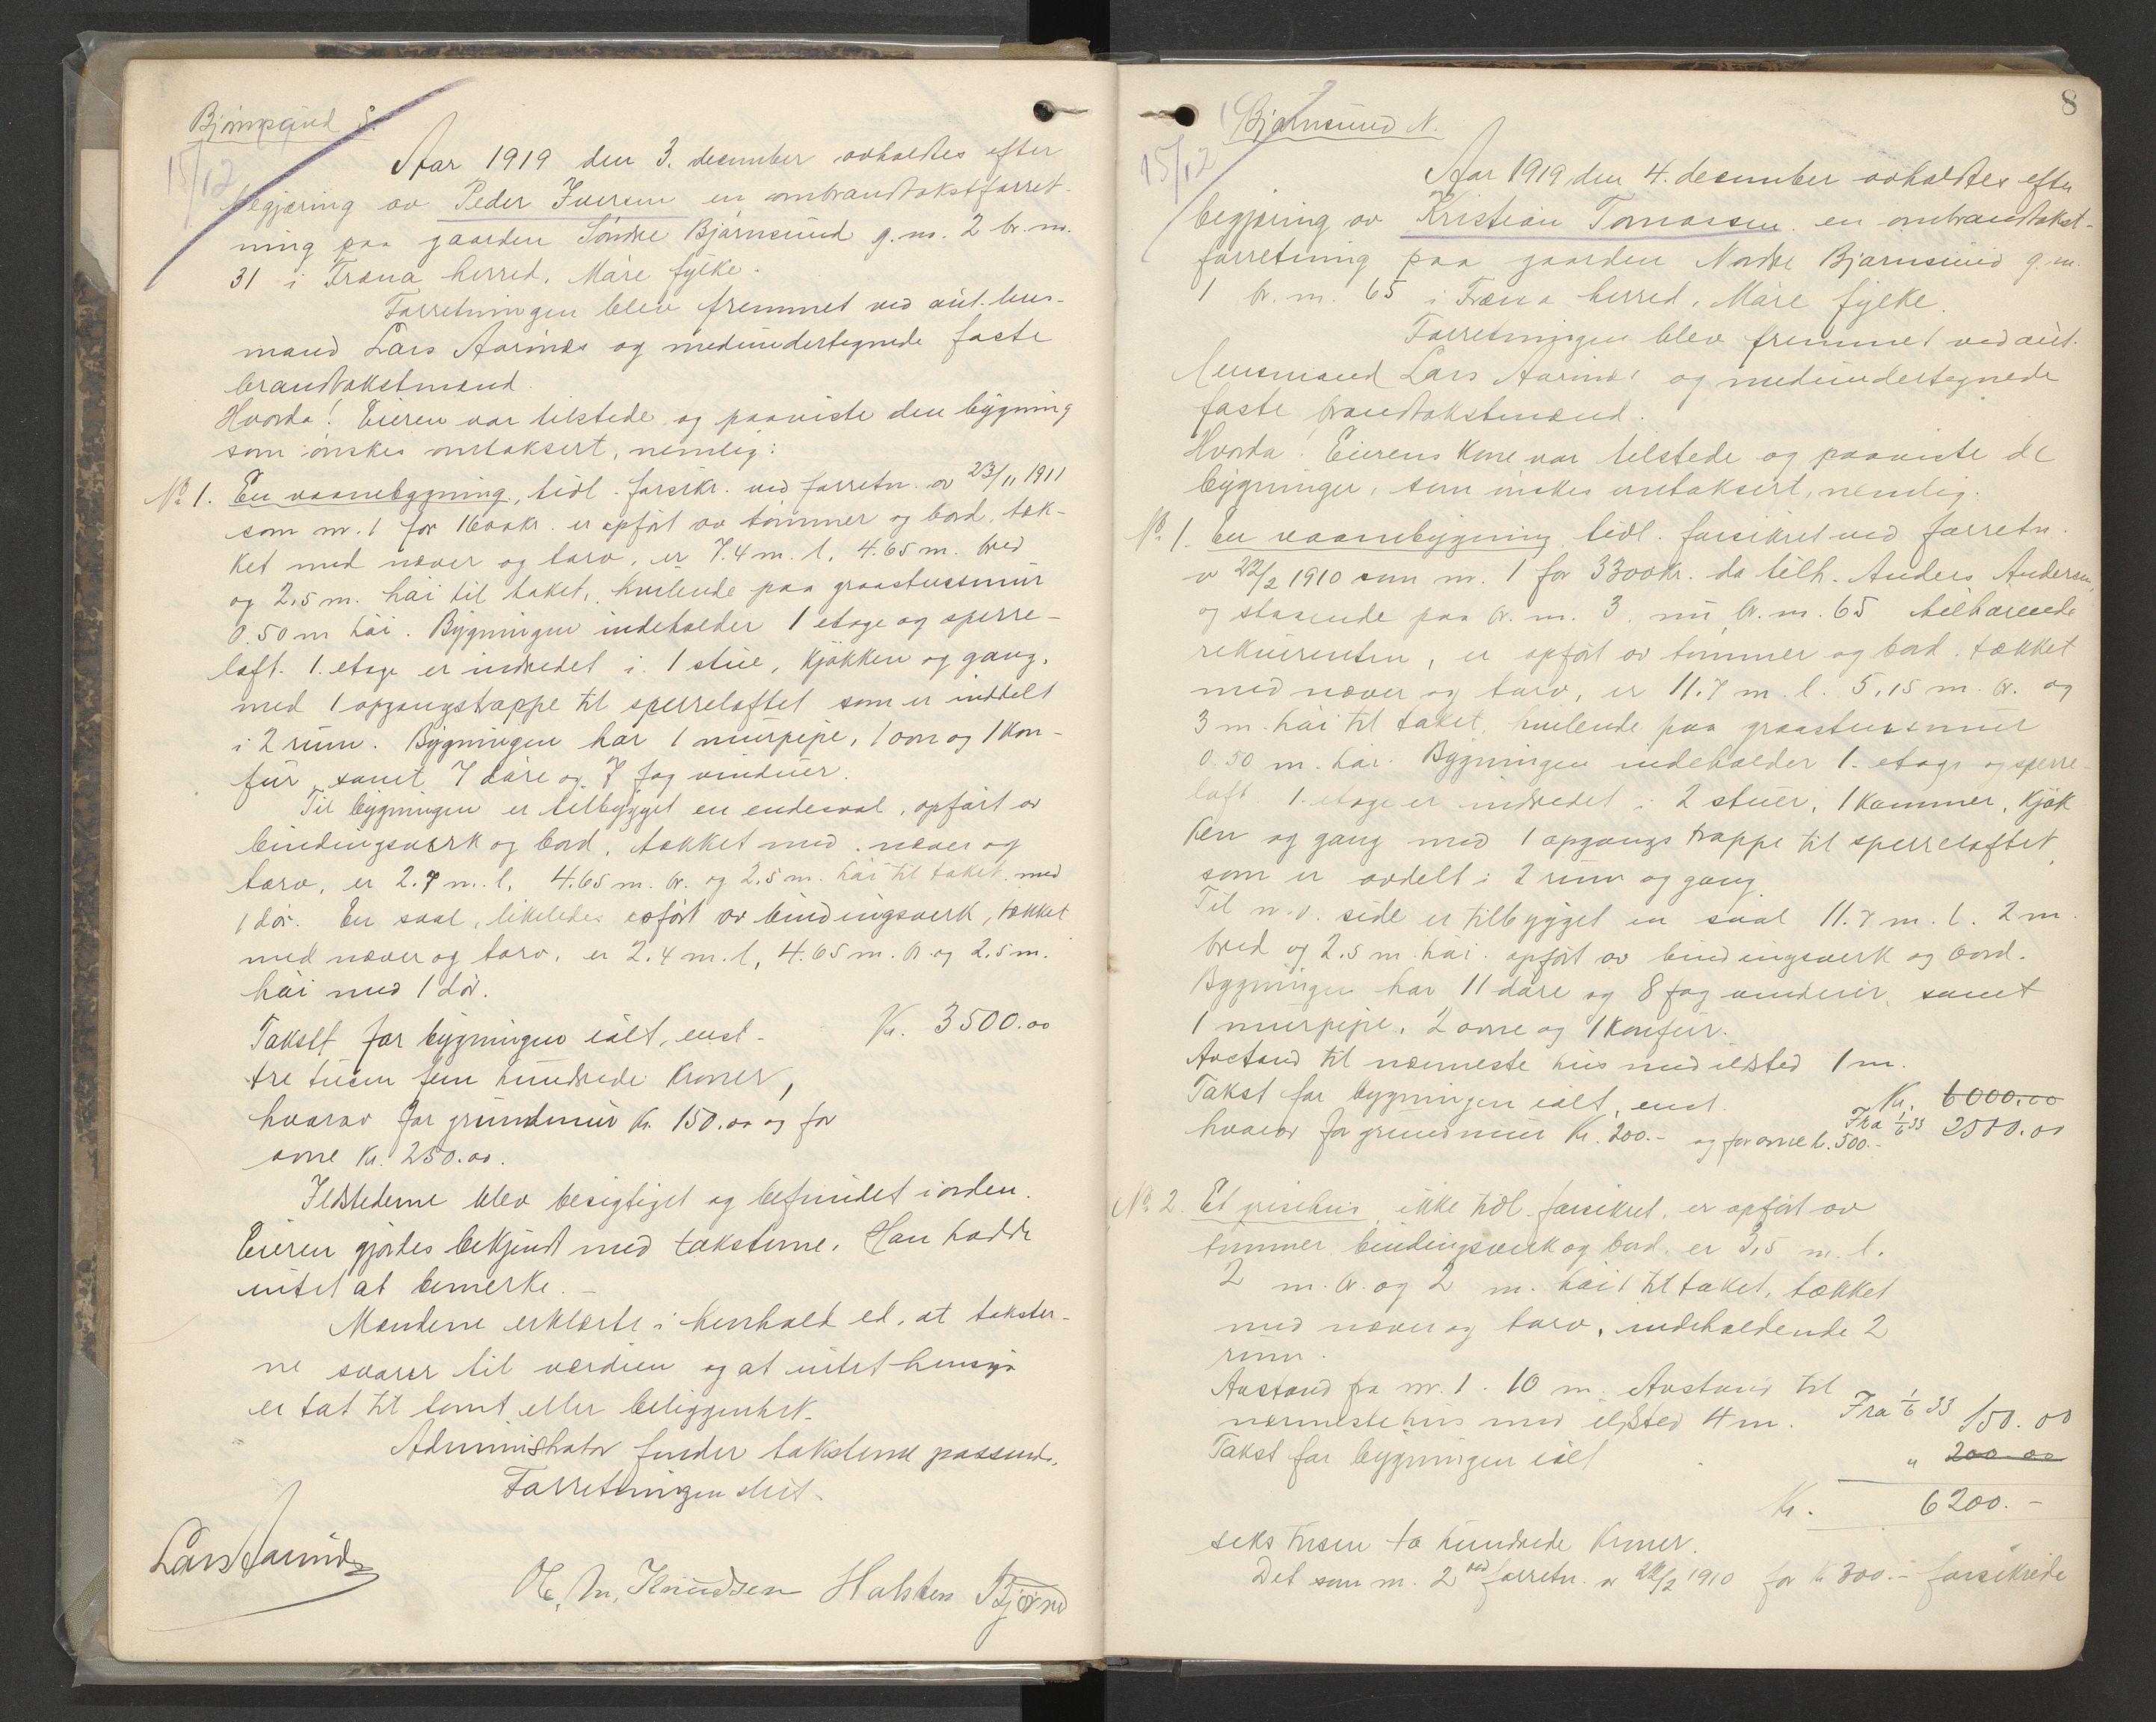 Bjørnsund S.
15/12
Aar 1919 den 3. december avholdtes efter
begjæring av Peder Iversen en ombrandtakstforret-
ning paa gaarden Søndre Bjørnsund g.nr. 2 br.nr.
31 i Fræna herred, Møre fylke.
Forretningen blev fremmet ved aut. lens-
mand Lars Aarnæs og medundertegnede faste
brandtakstmænd.
Hvorda! Eieren var tilstede og paaviste den bygning
som ønskes omtaksert, nemlig:
No 1. En vaanebygning, tidl. forsikr. ved forretn. av 23/11 1911
som nr. 1 for 1600 kr. er opført av tømmer og bord, tæk-
ket med næver og torv, er 7.4 m. l. 4.65 m. bred
og 2,5 m. høi til taket, hvilende paa graastensmur
0.50 m høi. Bygningen indeholder 1 etage og sperre-
loft. 1. etage er indredet i 1 stue, kjøkken og gang,
med 1 opgangstrappe til sperreloftet som er inddelt
i 2 rum. Bygningen har 1 murpipe, 1 ovn og 1 kom-
fur samt 7 døre og 7 fag vinduer.
Til bygningen er tilbygget en endesval, opført av
bindingsverk og bord, tækket med næver og
torv, er 2.7 m. l, 4.65 m. br. og 2,5 m. høi til taket med
1 dør. En sval, likeledes opført av bindingsverk, tækket
med næver og torv, er 2.4 m. l, 4.65 m. br. og 2,5 m.
høi med 1 dør.
Takst for bygningen ialt, enst. Kr. 3500.00
tre tusen fem hundrede kroner,
hvorav for grundmur kr. 150.00 og for
ovne kr. 250.00.
Ildstederne blev besigtiget og befundet i orden.
Eieren gjordes bekjendt med taksterne. Han hadde
intet at bemerke.
Mændene erklærte i henhold ed, at takster-
ne svarer til værdien og at intet hensyn
er tat til tomt eller beliggenhet.
Administrator finder taksterne passende.
Forretningen slut.
Lars Aarnæs
O. M. Knudsen Halsten Bjørnø
8
Bjørnsund N.
15/12
Aar 1919 den 4. december avholdtes efter
begjæring av Kristian Tomassen en ombrandtakst-
forretning paa gaarden Nordre Bjørnsund g.nr.
1 br.nr. 65 i Fræna herred, Møre fylke.
Forretningen blev fremmet ved aut.
lensmand Lars Aarnæs og medundertegnede
faste brandtakstmænd.
Hvorda. Eierens kone var tilstede og paaviste de
bygninger, som ønskes omtaksert, nemlig:
No 1. En vaanebygning tidl. forsikret ved forretn.
av 22/2 1910 som nr. 1 for 3300 kr. da tilh. Anders Andersen,
og staaende paa br.nr. 3. nu br.nr. 65 tilhørende
rekvirenten, er opført av tømmer og bord, tækket
med næver og torv, er 11.7 m. l. 5,15 m. br. og
3 m. høi til taket, hvilende paa graastensmur
0.50 m. høi. Bygningen indeholder 1. etage og sperre-
loft. 1. etage er indredet i 2 stuer, 1 kammer, kjøk
ken og gang med 1 opgangstrappe til sperreloftet
som er avdelt i 2 rum og gang.
Til n.v. side er tilbygget en sval 11.7 m. l. 2 m.
bred og 2.5 m. høi. opført av bindingsverk og bord.
Bygningen har 11 døre og 8 fag vinduer samt
1 murpipe, 2 ovne og 1 komfur.
Avstand til nærmeste hus med ildsted 1 m.
Takst for bygningen ialt, enst. Kr. 6000.00
hvorav for grundmur kr. 200.- og for ovne k. 500.- Fra 1/6 33 2500.00
No 2. Et grisehus, ikke tidl. forsikret, er opført av
tømmer, bindingsverk og bord, er 3,5 m. l.
2 m. br. og 2 m. høit til taket, tækket
med næver og torv, indeholdende 2
rum.
Avstand fra nr. 1. 10 m. Avstand til
nærmeste hus med ildsted 4 m. Fra 1/6 33 150.00
Takst for bygningen ialt " 200.00
Kr. 6200.-
seks tusen to hundrede kroner.
Det som nr. 2 ved forretn. av 22/2 1910 for kr 300.- forsikrede